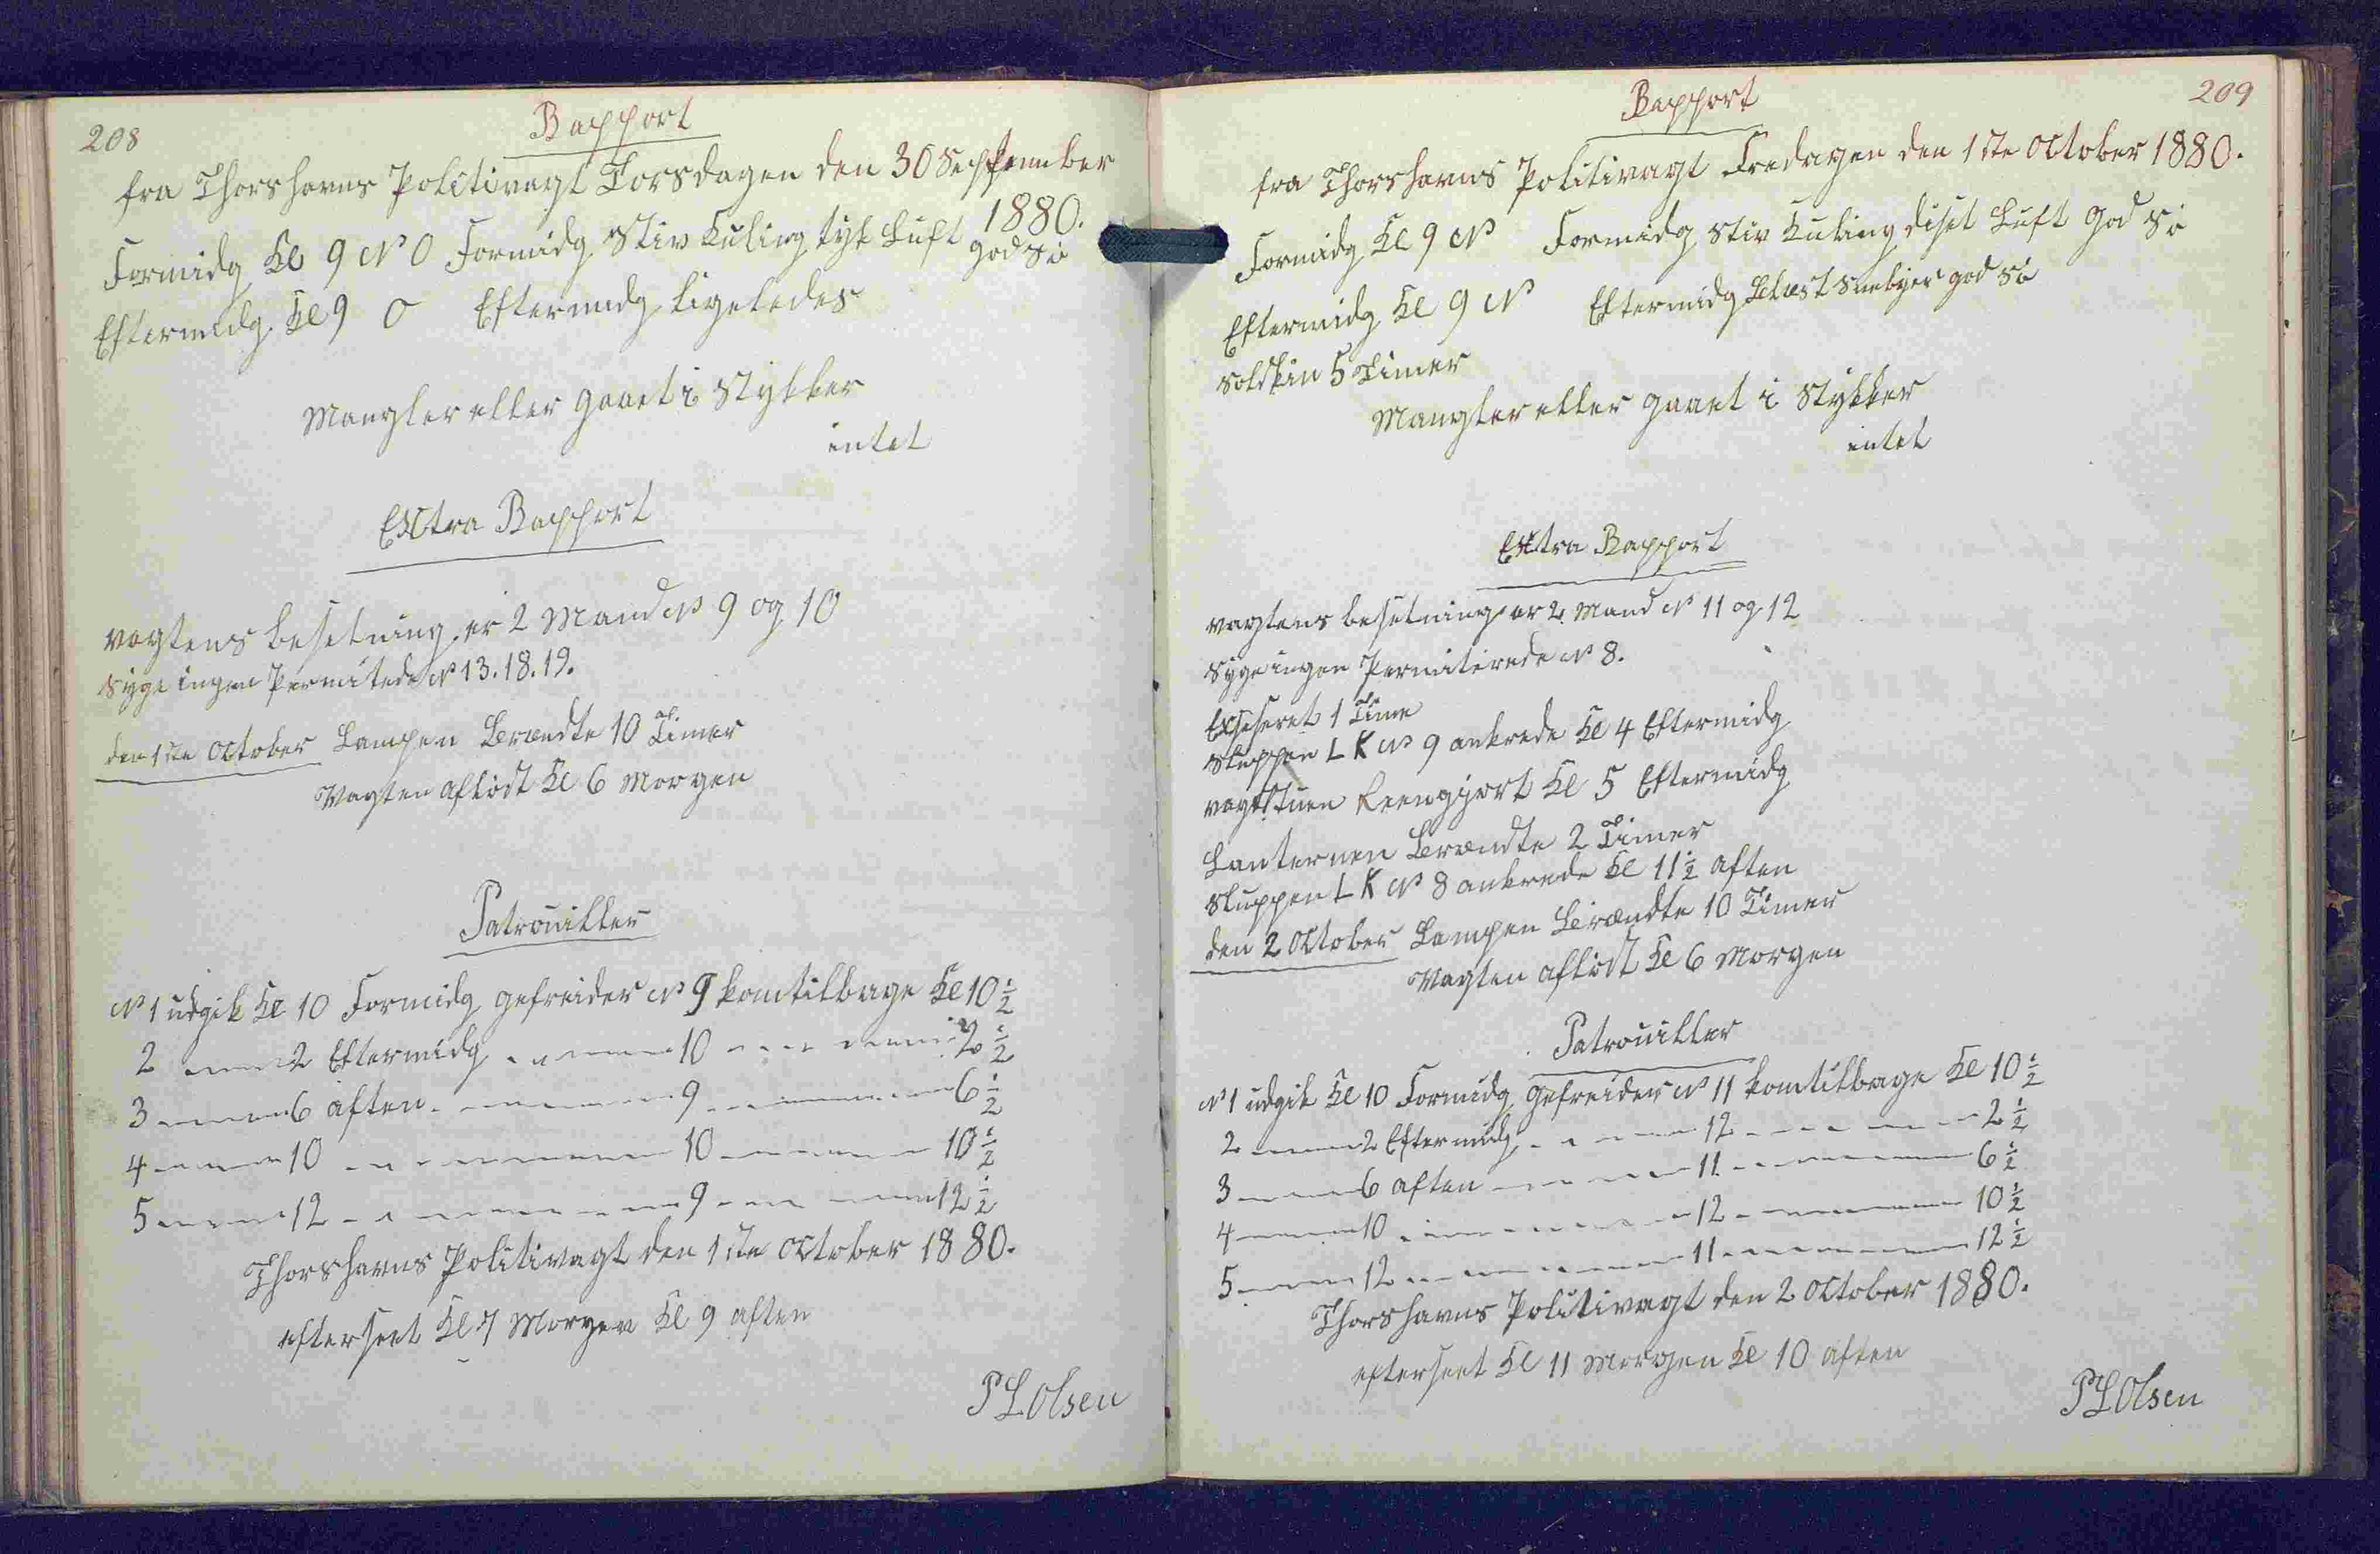 208
Rapport
fra Thorshavns Politivagt Torsdagen den 30 September
1880.
Formidg Kl 9 N O Formidg Stiv Kuling tyk Luft god Sö
Eftermidg Kl 9 O Eftermidg ligeledes
Mangler eller gaaet i Stykker
intet
Extra Rapport
vagtens besetning er 2 Mand N 9 og 10
Syge ingen Permitede N 13. 18. 19.
den 1ste October Lampen Brændte 10 Timer
Vagten aflöst Kl 6 Morgen
Patrouiller
N 1 udgik Kl 10 Formidg gefreider N 9 kom tilbage Kl 10 1/2
2 2 Eftermidg 10 2 1/2
3 6 aften 9 6 1/2
4 10 10 10 1/2
5 12 9 12 1/2
Thorshavns Politivagt den 1ste October 1880.
efterseet Kl 7 Morgen Kl 9 aften
P L Olsen
209
Rapport
fra Thorshavns Politivagt Fredagen den 1ste October 1880.
Formidg Kl 9 N Formidg Stiv Kuling diset Luft god Sö
Eftermidg Kl 9 N Eftermidg Blæst Snebyer god Sö
Solskin 5 Timer
Mangler eller gaaet i Stykker
intet
Extra Rapport
vagtens besetning er 2 Mand N 11 og 12
Syge ingen Permiterede N 8.
Exseseret 1 Time
Sluppen L K N 9 ankrede Kl 4 Eftermidg
vagtstuen Reengjort Kl 5 Eftermidg
Lanternen Brændte 2 Timer
Sluppen L K N 8 ankrede Kl 11 1/2 aften
den 2 October Lampen Brændte 10 Timer
Vagten aflöst Kl 6 Morgen
Patrouiller
N 1 udgik Kl 10 Formidg gefreider N 11 kom tilbage Kl 10 1/2
2 2 Eftermidg 12 2 1/2
3 6 aften 11 6 1/2
4 10 12 10 1/2
5 12 11 12 1/2
Thorshavns Politivagt den 2 October 1880.
efterseet Kl 11 Morgen Kl 10 aften
P L Olsen